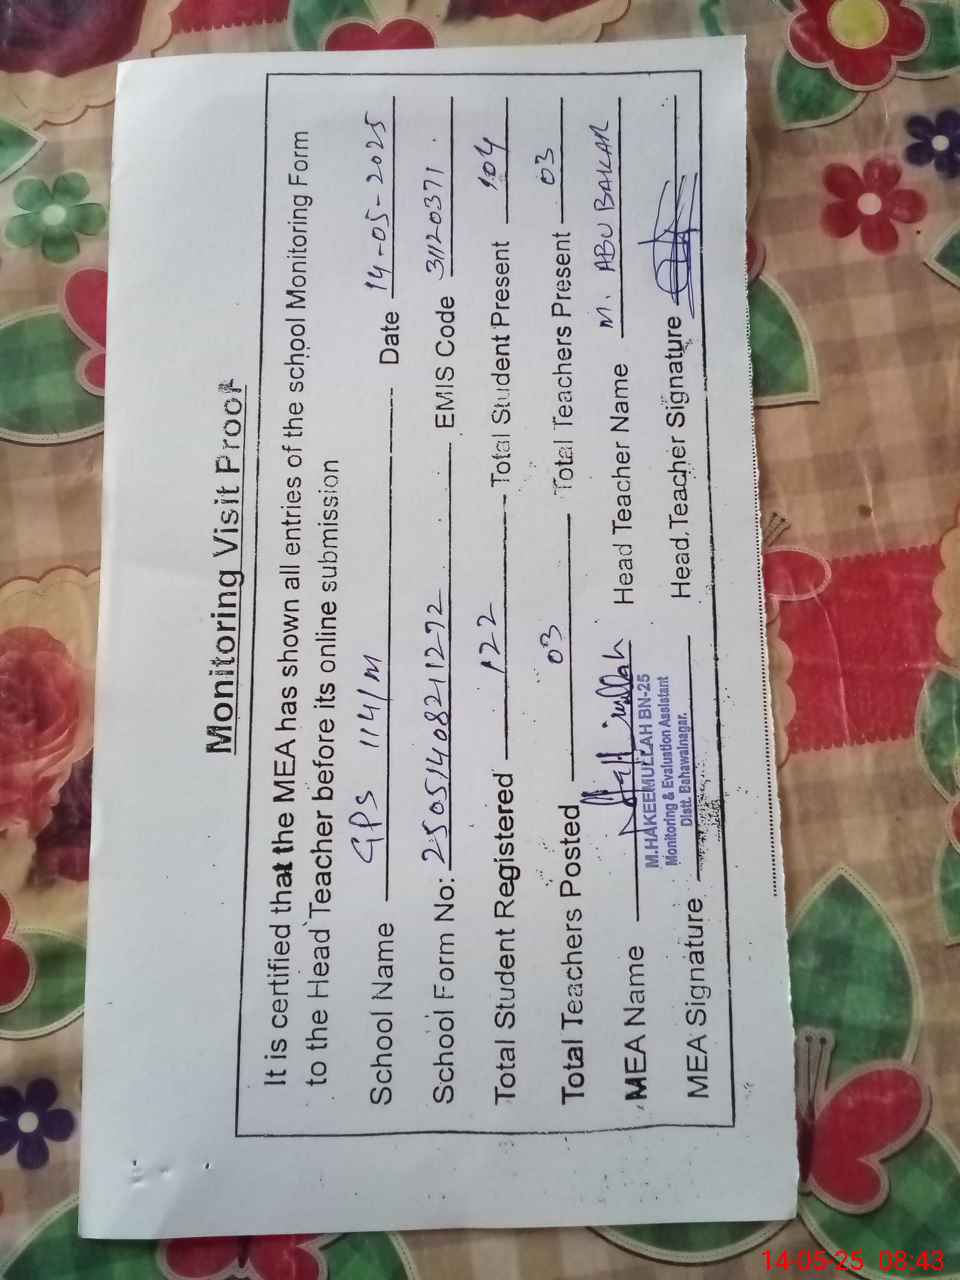 Monitoring Visit Proof
It is certified that the MEA has shown all entries of the school Monitoring Form
to the Head Teacher before its online submission
School Name GPS 114/M Date 14-05-2025
School Form No: 250514082111272 EMIS Code 31120371
Total Student Registered 122 Total Student Present 104
Total Teachers Posted 03 Total Teachers Present 03
MEA Name Head Teacher Name M. ABU BAKAR
M.HAKEEMULLAH BN-25
Monitoring & Evaluation Assistant
Distt. Bahawalnagar.
MEA Signature Head Teacher Signature
14-05-25 08:43